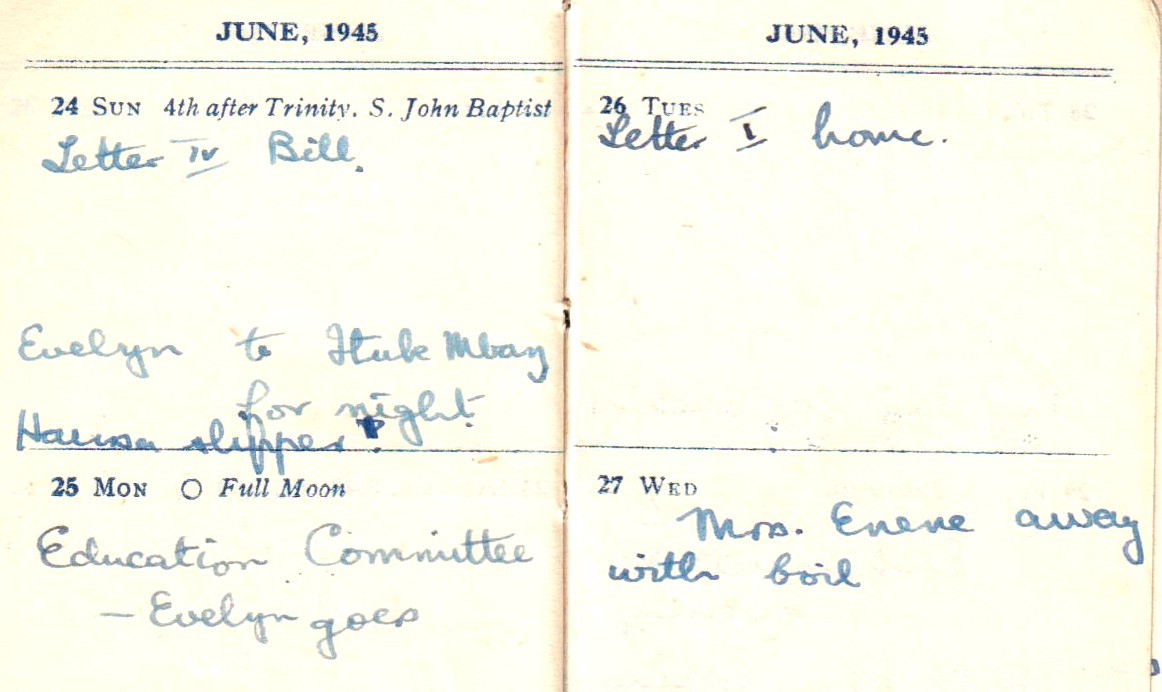 JUNE, 1945
24 SUN 4th after Trinity. S. John Baptist
Letter IV Bill.
Evelyn to Ituk Mbang
for night
Hausa slippers
25 MON Full Moon
Education Committee
— Evelyn goes
JUNE, 1945
26 TUES
Letter I home.
27 WED
Mrs. Enene away
with boil